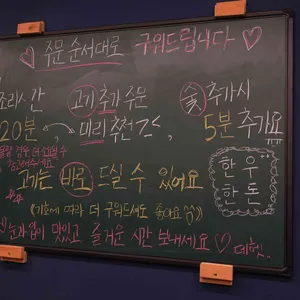 ♡ 주문 순서대로 구워드립니다 ♡
조리시간 고기 추가 주문 숯 추가시
20분 미리 추천 5분 추가요
고기는 바로 드실 수 있어요
한우
한돈
(기호에 따라 더 구워드셔도 좋아요 ^^)
맛있고 즐거운 시간 보내세요 ♡